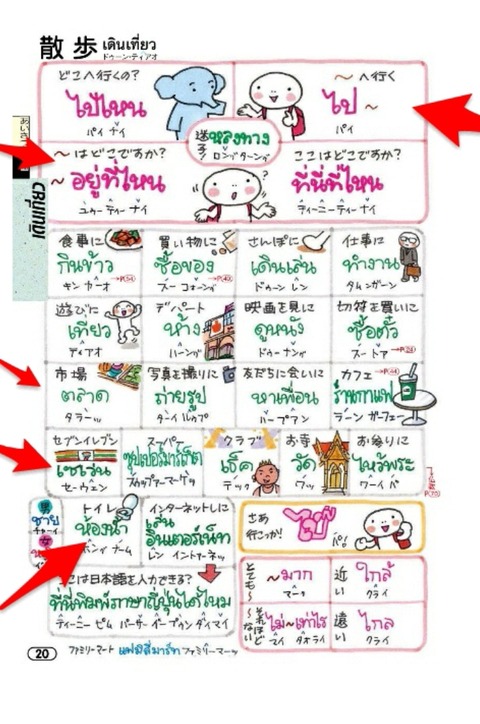 散歩 เดินเที่ยว
ドゥーン・ティアオ
どこへ行くの?
ไปไหน
パイ ナイ
~へ行く
ไป ~
パイ
迷子! หลงทาง
ロング ターング
~はどこですか?
~ อยู่ที่ไหน
ユゥー ティー ナイ
ここはどこですか?
ที่นี่ที่ไหน
ティーニー ティー ナイ
食事に
กินข้าว
キン カーオ →P(54)
買い物に
ซื้อของ
スー コォーング →P(40)
さんぽに
เดินเล่น
ドゥーン レン
仕事に
ทำงาน
タム ンガーン
遊びに
เที่ยว
ティアオ
デパート
ห้าง
ハーング
映画を見に
ดูหนัง
ドゥー ナング
切符を買いに
ซื้อตั๋ว
スー トア →P(24)
市場
ตลาด
タラーッ
写真を撮りに
ถ่ายรูป
ターイ ループ
友だちに会いに
หาเพื่อน
ハー プアン
カフェ →P(44)
ร้านกาแฟ
ラーン ガーフェー
セブンイレブン
เซเว่น
セーウェン
スーパー
ซุปเปอร์มาร์เก็ต
スゥップァーマーケッ
クラブ
เธ็ค
テック
お寺
วัด
ワッ
お参りに
ไหว้พระ
ワーイ パ
男
ชาย
チャーイ
女
トイレ
ห้องน้ำ
ホング ナーム
インターネットしに
เล่น
อินเตอร์เน็ท
レン イントァーネッ
さあ
行こっか!
ไป
パイ!
ここは日本語を入力できる?
ที่นี่พิมพ์ภาษาญี่ปุ่นได้ไหม
ティーニー ピム パーサー イープゥン ダイ マイ
とても~
~มาก
マーク
近い
ใกล้
クライ
それほど~ない
ไม่~เท่าไร
マイ タオライ
遠い
ไกล
クライ
20 ファミリーマート แฟมิลี่มาร์ท ファミリーマーッ